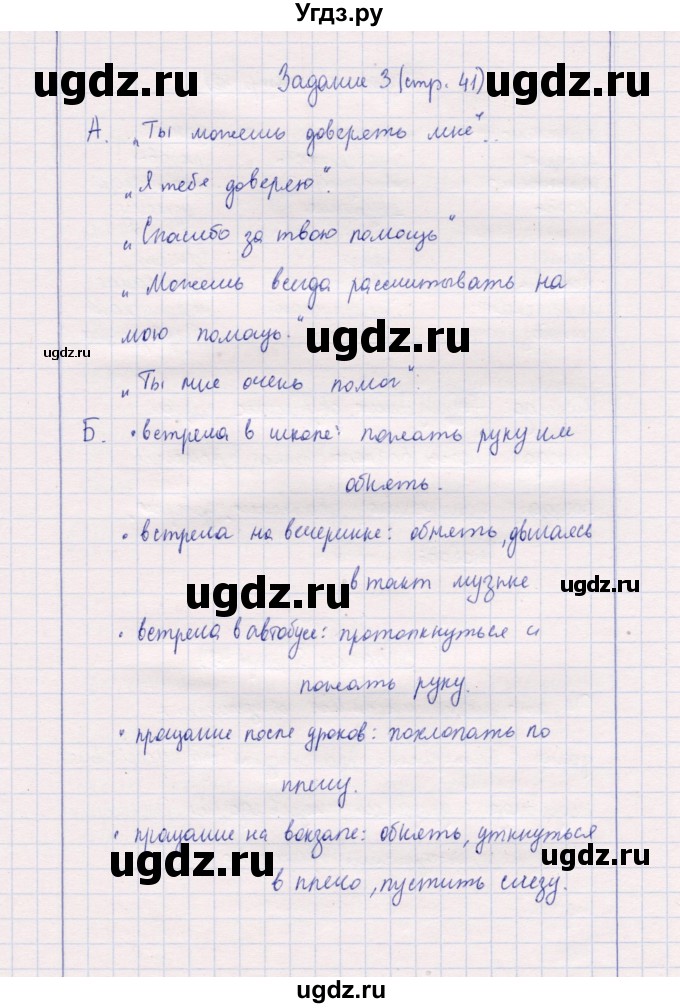 Угдз.ру
ugdz.ru ugdz.ru
Задание 3 (стр. 41)
А. „Ты можешь доверять мне“.
„Я тебе доверяю“.
„Спасибо за твою помощь“
„Можешь всегда рассчитывать на
ugdz.ru
мою помощь.“
ugdz.ru
„Ты мне очень помог“.
Б. • встреча в школе: пожать руку или
обнять.
• встреча на вечеринке: обнять, двигаясь
в такт музыке
ugdz.ru
ugdz.ru
• встреча в автобусе: протолкнуться и
пожать руку.
• прощание после уроков: похлопать по
плечу.
• прощание на вокзале: обнять, уткнуться
ugdz.ru
ugdz.ru
в плечо, пустить слезу.
ugdz.ru